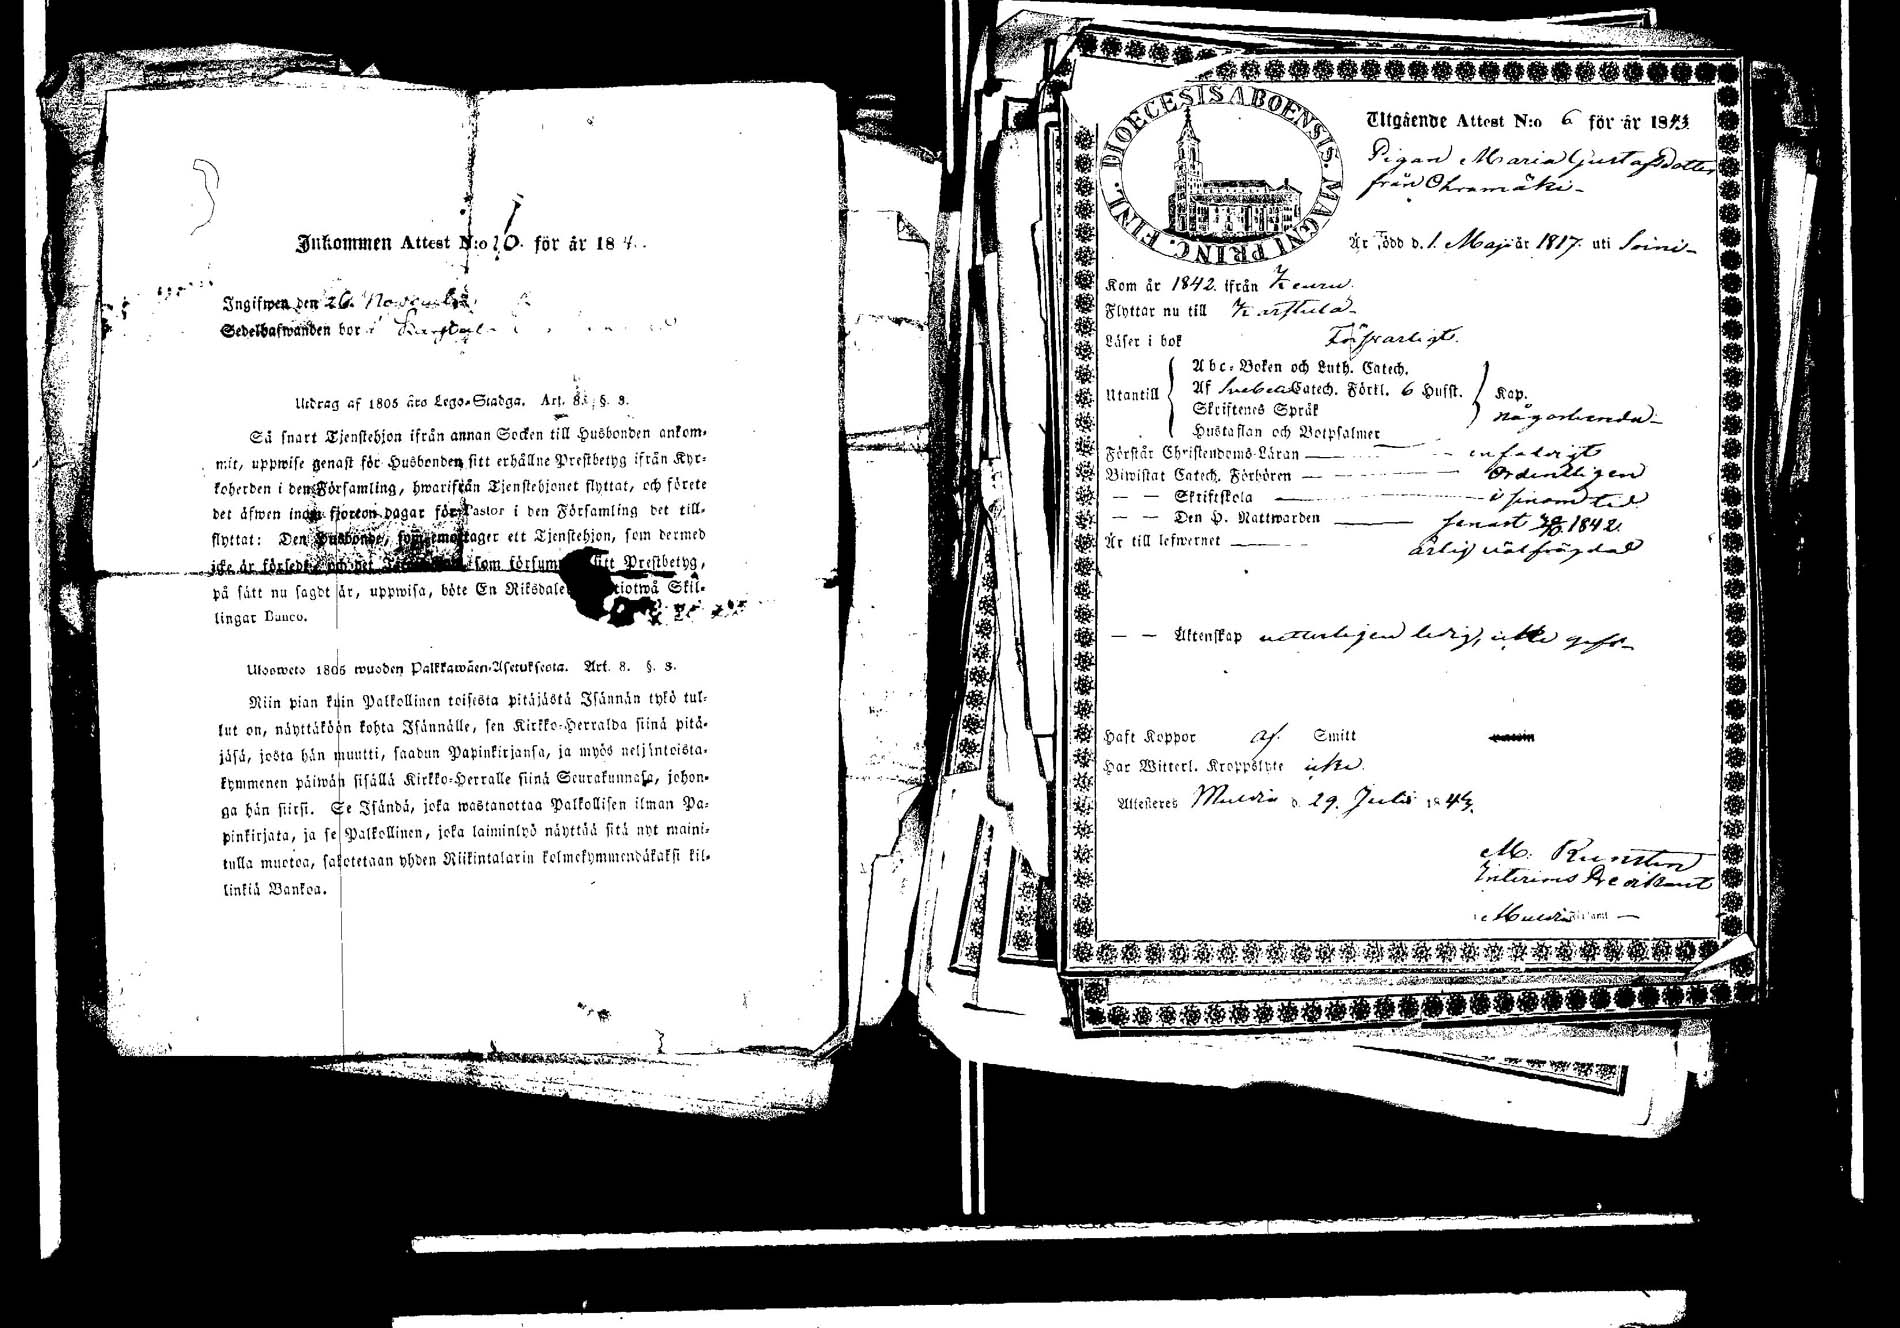 Inkommen Attest N:o 10. för år 184
Ingifwen den 26. November
Sedelhafwanden bor i
Utdrag af 1805 års Lego-Stadga. Art. 8. §. 3.
Så snart Tjenstehjon ifrån annan Socken till Husbonden ankom-
mit, uppwise genast för Husbonden sitt erhållne Prestbetyg ifrån Kyr-
koherden i den Församling, hwarifrån Tjenstehjonet flyttat, och förete
det äfwen inom fjorton dagar för Pastor i den Församling det till-
flyttat: Den Husbonde, som emottager ett Tjenstehjon, som dermed
icke är försedt, och det som försum sitt Prestbetyg,
på sätt nu sagdt är, uppwisa, böte En Riksdaler tiotwå Skil-
lingar Banco.
Ulosweto 1805 wuoden Palkkawäen-Asetuksesta. Art. 8. §. 3.
Niin pian kuin Palkollinen toisesta pitäjästä Isännän tykö tul-
lut on, näyttäköön kohta Isännälle, sen Kirkko-Herralda siinä pitä-
jäsä, josta hän muutti, saadun Papinkirjansa, ja myös neljäntoista-
kymmenen päiwän sisällä Kirkko-Herralle siinä Seurakunnasa, johon-
ga hän siirsi. Se Isändä, joka wastanottaa Palkollisen ilman Pa-
pinkirjata, ja se Palkollinen, joka laiminlyö näyttää sitä nyt maini-
tulla muotoa, sakotetaan yhden Riikintalarin kolmekymmendäkaksi kil-
linkiä Bankoa.
FINL. DIOECESIS ABOENSIS. MAGNI PRINC.
Utgående Attest N:o 6 för år 1843
Pigan Maria Gustafsdotter
från Ohramäki
Är född d. 1. Maji år 1817. uti Soini
Kom år 1842. ifrån Keuru
Flyttar nu till Karstula
Läser i bok Försvarligt.
Abc-Boken och Luth. Catech.
Utantill Af Svebelii Catech. Förkl. 6 Hufst. Kap.
Skriftenes Språk någorlunda
Hustaflan och Botpsalmer
Förstår Christendoms-Läran enfaldigt
Biwistat Catech. Förhören ordentligen
— — Skriftskola i sinom tid
— — Den H. Nattwarden senast 1842.
Är till lefwernet ärlig välfrägdad
— — Äktenskap veterligen ledig, icke gift
Haft Koppor af Smitt
Har Witterl. Kroppslyte icke.
Attesteres Multia d. 29. Julii 1843.
M.
Interims Predikant
i Multia